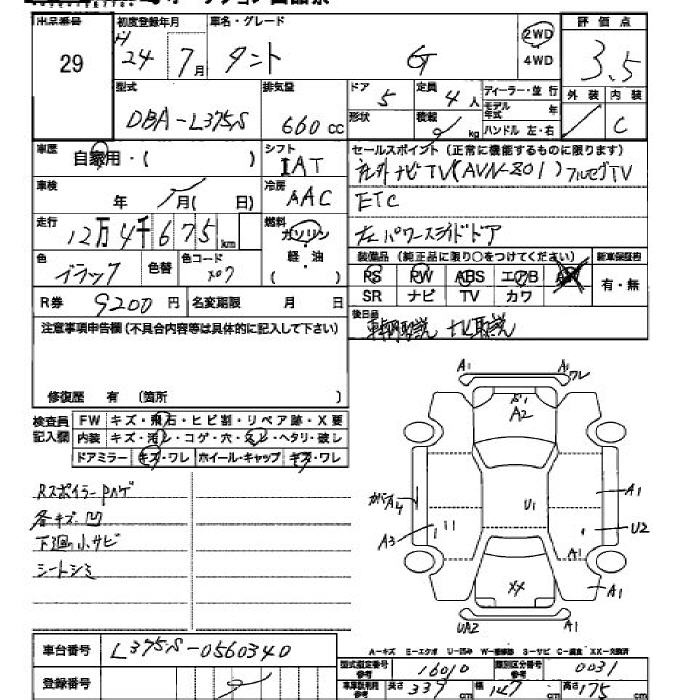 出品番号 初度登録年月 車名・グレード 評価点
29 H 24年 7月 タント G 2WD 4WD 3.5
型式 排気量 ドア 定員 ディーラー・並行 外装 内装
DBA-L375S 660cc 5 4人 モデル年式 年 C
形状 積載 kg ハンドル 左・右
車歴 自家用・( ) シフト IAT セールスポイント(正常に機能するものに限ります)
社外ナビTV(AVN-Z01)フルセグTV
車検 年 月( 日) 冷房 AAC ETC
走行 12万4千675km 燃料 ガソリン 軽・油 ( ) 左パワースライドドア
色 ブラック 色替 色コード X07 装備品(純正品に限り○をつけてください) 新車保証書
PS PW ABS エアB AW 有・無
R券 9200円 名変期限 月 日 SR ナビ TV カワ
注意事項申告欄(不具合内容等は具体的に記入して下さい) 後日品 車輌取説 ナビ取説
修復歴 有 (箇所 )
検査員記入欄 FW キズ・飛石・ヒビ割・リペア跡・X要
内装 キズ・汚レ・コゲ・穴・スレ・ヘタリ・破レ
ドアミラー キズ・ワレ ホイール・キャップ キズ・ワレ
A1 A1 ワレ
A2
Rスポイラー Pハゲ
ガバA4 U1 A1
各キズ凹
A3 U2
下廻小サビ
A1
シートシミ
XX A1
UA2 A1
車台番号 L375S-0560340
A-キズ E-エクボ U-凹み W-補修跡 S-サビ C-腐食 XX-交換済
登録番号
型式指定番号 参考 16010 類別区分番号 参考 0031
車庫証明用 参考 長さ 339cm 幅 147cm 高さ 175cm